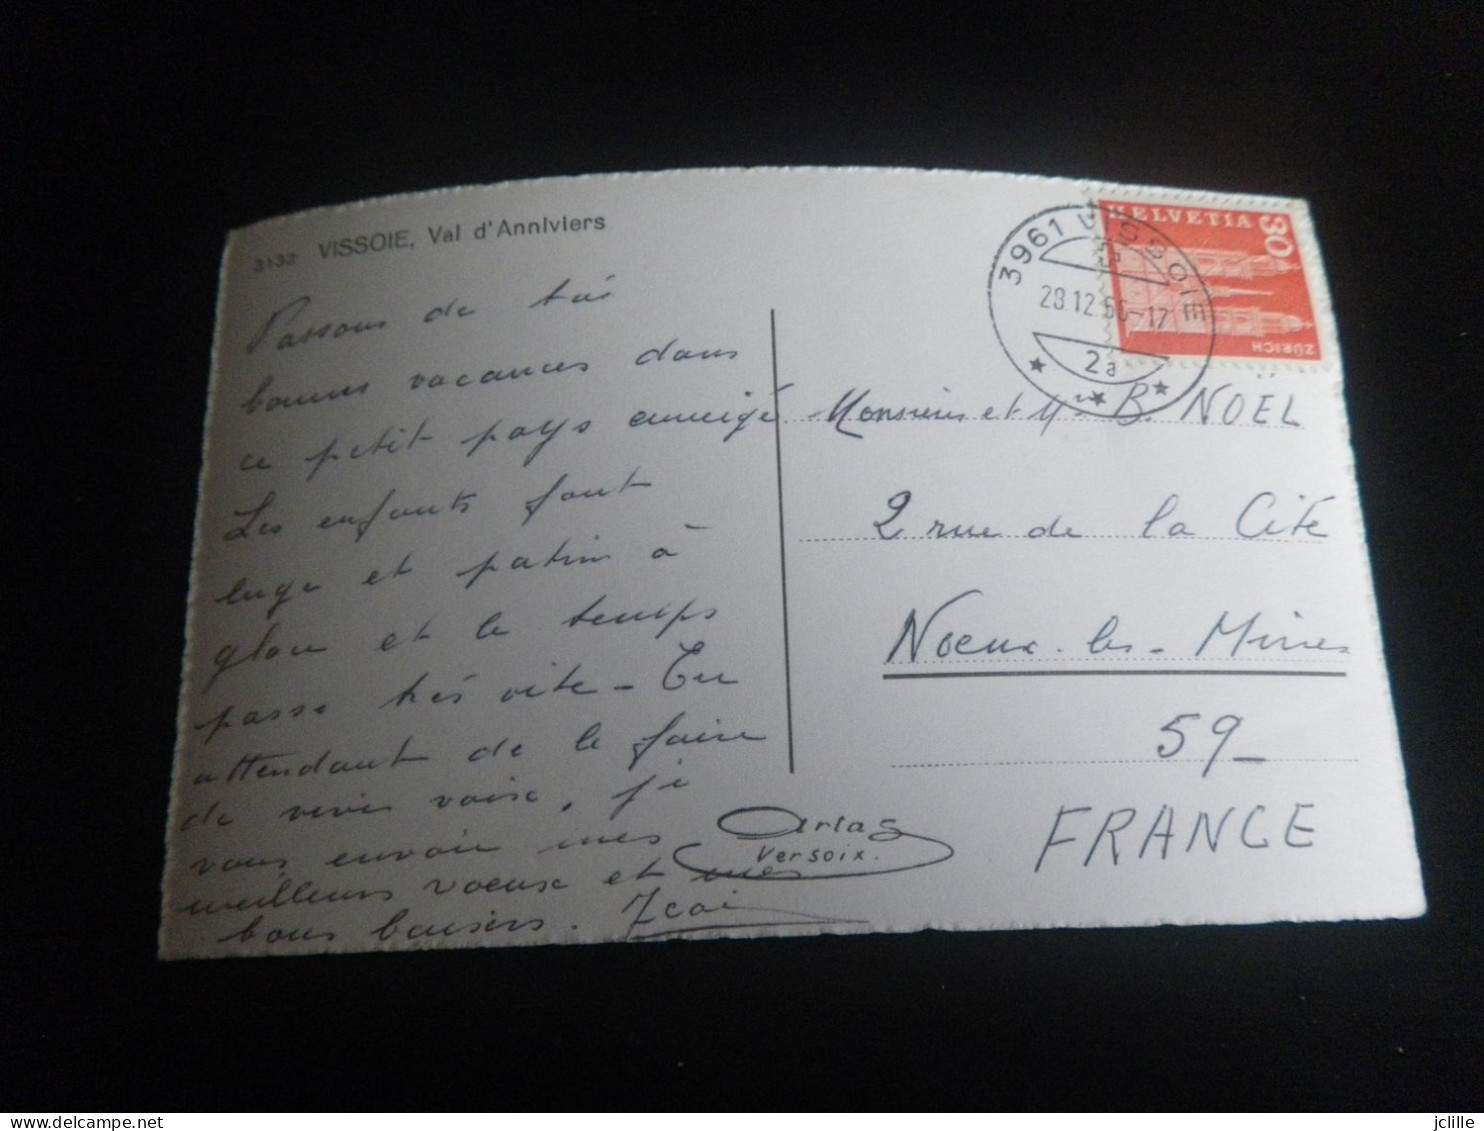 3132 VISSOIE, Val d'Anniviers
Passons de très
bonnes vacances dans
ce petit pays enneigé
Les enfants font
luge et patin à
glace et le temps
passe très vite - En
attendant de le faire
de vive voix, je
vous envoie mes
meilleurs voeux et mes
bons baisers.
Artas
Versoix.
HELVETIA 30
ZÜRICH
3961 VISSOIE
28.12.66-17
2a
Monsieur et Me B. NOËL
2 rue de la Cité
Noeux-les-Mines
59_
FRANCE
jclille